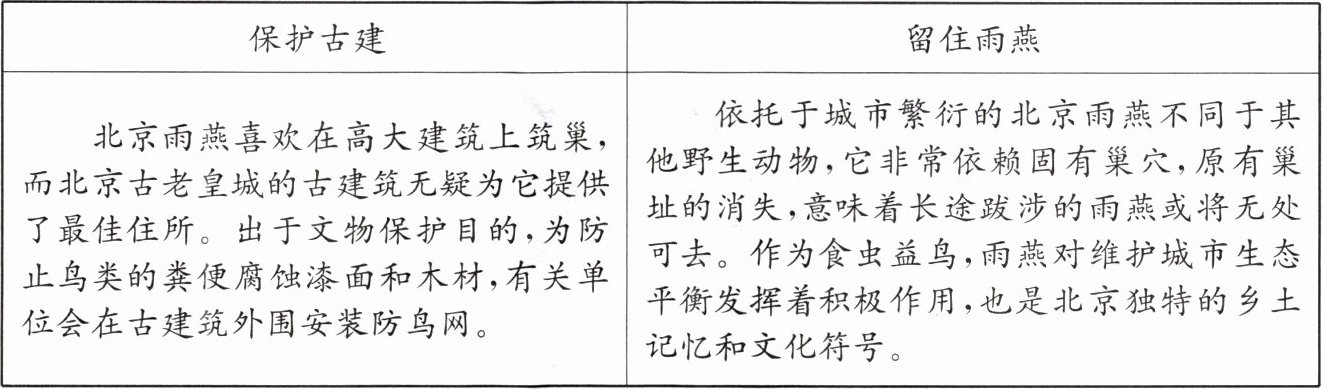 保护古建
北京雨燕喜欢在高大建筑上筑巢，
而北京古老皇城的古建筑无疑为它提供
了最佳住所。出于文物保护目的，为防
止鸟类的粪便腐蚀漆面和木材，有关单
位会在古建筑外围安装防鸟网。
留住雨燕
依托于城市繁衍的北京雨燕不同于其
他野生动物，它非常依赖固有巢穴，原有巢
址的消失，意味着长途跋涉的雨燕或将无处
可去。作为食虫益鸟，雨燕对维护城市生态
平衡发挥着积极作用，也是北京独特的乡土
记忆和文化符号。